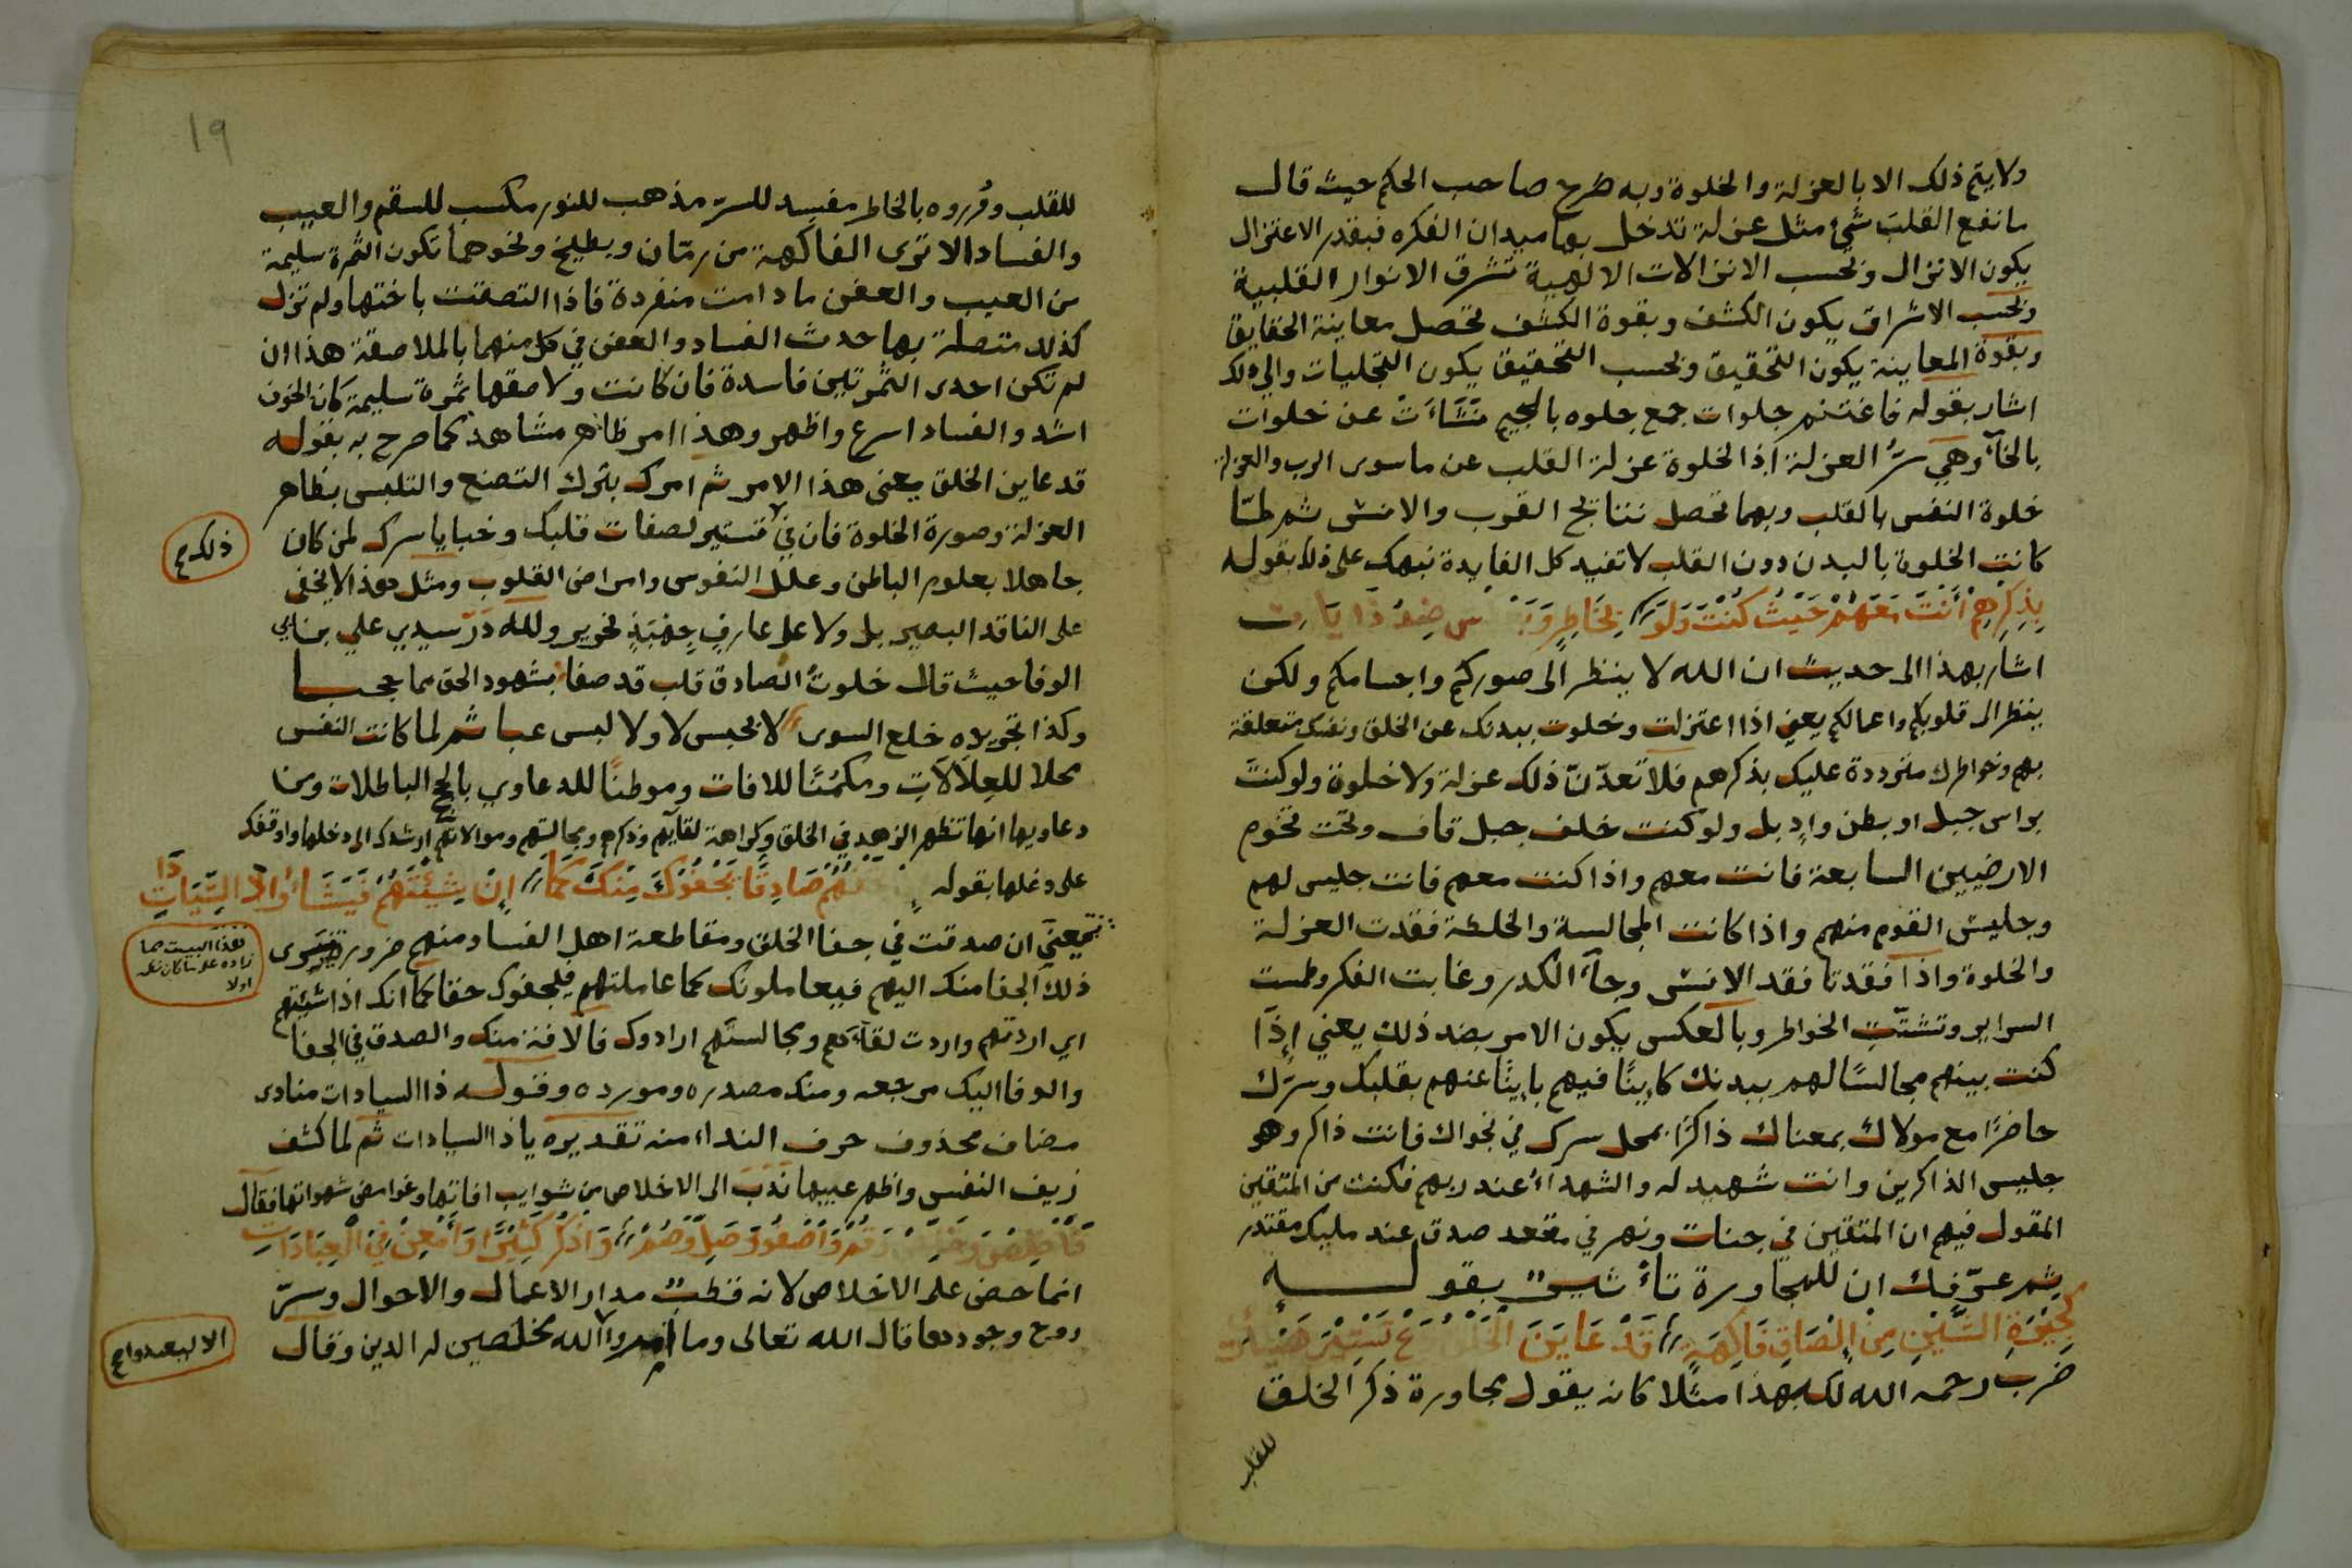 ولا يتم ذلك الا بالعزلة والخلوة وبه صرح صاحب الحكم حيث قال
ما نفع القلب شئ مثل عزلة تدخل بها ميدان الفكره فبقدر الاعتزال
يكون الانزال وبحسب الانزالات الالهية تشرق الانوار القلبية
وبحسب الاشراق يكون الكشف وبقوة الكشف تحصل معاينة الحقايق
وبقوة المعاينة يكون التحقيق وبحسب التحقيق يكون التجليات والى ذلك
اشار بقوله فاغتنم جلوات جمع جلوه بالجيم نشأت عن خلوات
بالخآء وهي سرُّ العزلة اذ الخلوة عزلة القلب عن ما سوى الرب والعزلة
خلوة النفس بالقلب وبهما تحصل نتايج القرب والانس ثم لمّا
كانت الخلوة بالبدن دون القلب لا تفيد كل الفايدة نبهك على ذلك بقوله
بِذِكْرِهِمْ أَنْتَ مَعَهُمْ حَيْثُ كُنْتَ وَلَوْ بِخَاطِرٍ
اشار بهذا الى حديث ان الله لا ينظر الى صوركم واجسامكم ولكن
ينظر الى قلوبكم واعمالكم يعني اذا اعتزلت وخلوت ببدنك عن الخلق ونفسك متعلقة
بهم وخواطرك مترددة عليك بذكرهم فلا تعدّنّ ذلك عزلة ولا خلوة ولو كنت
براس جبل او بطن وادٍ بل ولو كنت خلف جبل قاف وتحت تخوم
الارضين السابعة فانت معهم واذا كنت معهم فانت جليس لهم
وجليس القوم منهم واذا كانت المجالسة والخلطة فقدت العزلة
والخلوة واذا فقدتا فقد الانس وجآء الكدر وغابت الفكر وطمست
السراير وتشتّتِ الخواطر وبالعكس يكون الامر بضد ذلك يعني إذا
كنت بينهم مجالسًا لهم ببدنك كاينًا فيهم باينًا عنهم بقلبك وسرّك
حاضرًا مع مولاك بمعناك ذاكرًا بمحل سرك في نجواك فانت ذاكر وهو
جليس الذاكرين وانت شهيد له والشهدآء عند ربهم فكنت من المتقين
المقول فيهم ان المتقين في جنات ونهر في مقعد صدق عند مليك مقتدر
ثم عرّفك ان للمجاورة تاثير بقوله
مِنْ إِلْصَاقِ فَاكِهَةٍ قَدْ عَايَنَ الْخَلْقُ
ضرب رحمه الله لك بهذا مثلا كانه يقول مجاورة ذكر الخلق
للقلب
١٩
للقلب ومروره بالخاطر مفسد للسرّ مذهب للنور مكسب للسقم والعيب
والفساد الا ترى الفاكهة من رمّان وبطيخ ونحوهما تكون الثمرة سليمة
من العيب والعفن ما دامت منفردة فاذا التصقت باختها ولم تزل
كذلك متصلة بها حدث الفساد والعفن في كل منهما بالملاصقة هذا ان
لم تكن احدى الثمرتين فاسدة فان كانت ولاصقها ثمرة سليمة كان الخوف
اشد والفساد اسرع واظهر وهذا امر ظاهر مشاهد كما صرح به بقوله
قد عاين الخلق يعني هذا الامر ثم امرك بترك التصنع والتلبس بظاهر
العزلة وصورة الخلوة فان في تستير لصفات قلبك وخبايا سرك لمن كان
ذلك صح
جاهلا بعلوم الباطن وعلل النفوس وامراض القلوب ومثل هذا لا يخفى
على الناقد البصير بل ولا على عارف جهبذٍ نحرير ولله درّ سيدي علي بن ابي
الوفا حيث قال خلوت الصادق قلب قد صفا بشهود الحق مما حجبا
وكذا تجريده خلع السوى لا بحبس لا ولا لبس عبا ثم لما كانت النفس
محلا للعلالات ومكمنًا للافات وموطنًا للدعاوي بالحج الباطلات ومن
دعاويها انها تظهر الزهد في الخلق وكراهة لقآيهم وذكرهم ومجالستهم وموالاتهم ارشدك الى دخلها واوقفك
على دغلها بقوله صَادِقًا يَجْفُوكَ مِنْكَ كَمَا إِنْ شِئْتَهُمْ ذَا السِّيَادَاتِ
يعني ان صدقت في جفا الخلق ومقاطعة اهل الفساد منهم ضرورة يسرى
هذا البيت مما زاده على ما كان اولا
ذلك الجفا منك اليهم فيعاملونك كما عاملتهم فيجفوك حقا كما انك اذا شئتهم
اي اردتهم واردت لقآءهم ومجالستهم ارادوك فالافة منك والصدق في الجفا
والوفا اليك مرجعه ومنك مصدره ومورده وقوله ذا السيادات منادى
مضاف محذوف حرف النداء منه تقديره يا ذا السيادات ثم لما كشف
زيف النفس واظهر عيبها نَدَبَ الى الاخلاص من شوايب افاتها وغوامض شهواتها فقال
وَصَلِّ وَصُمْ وَاذْكُرْ كَثِيْرًا وَأَمْعِنْ فِي الْعِبَادَاتِ
انما حضّ على الاخلاص لانه قطب مدار الاعمال والاحوال وسرّ
روح وجودها قال الله تعالى وما امروا الله مخلصين له الدين وقال
الا ليعبدوا صح